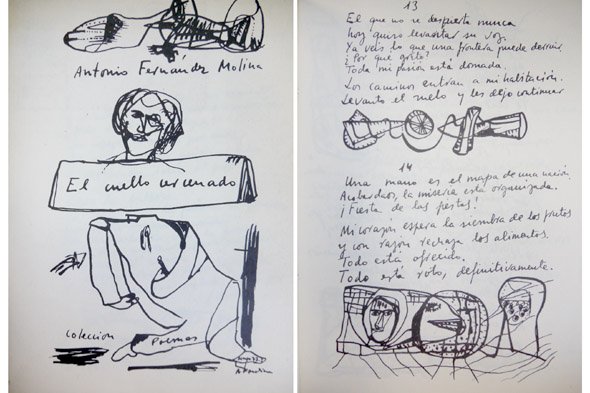 Antonio Fernández Molina
El cuello cercenado
Colección
Poemas
13
El que no se despierta nunca
hoy quiso levantar su voz.
Ya veis lo que una frontera puede derruir.
¿Por qué grito?
Toda mi pasión está domada.
Los caminos entran a mi habitación.
Levanto el y les dejo continuar
14
Una mano es el mapa de una nación
la miseria está organizada.
¡Fiesta de las fiestas!
Mi corazón espera la siembra de los frutos
y con razón rechaza los alimentos.
Todo está ofrecido.
Todo está roto, definitivamente.